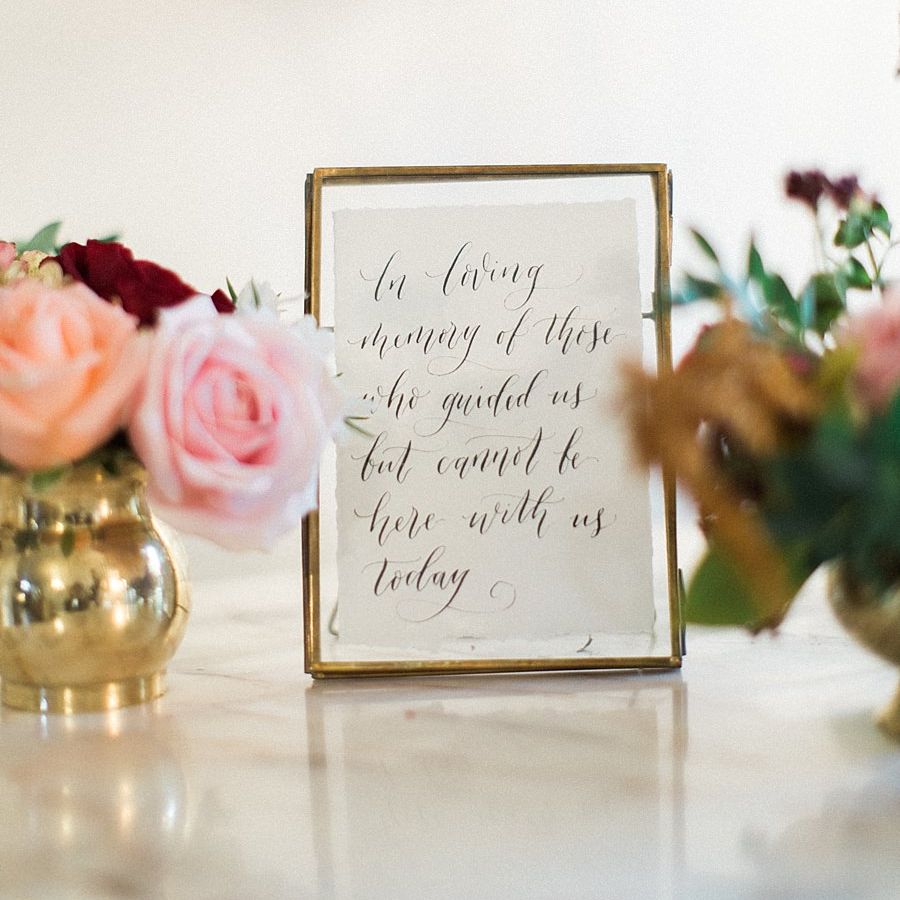 In loving
memory of those
who guided us
but cannot be
here with us
today